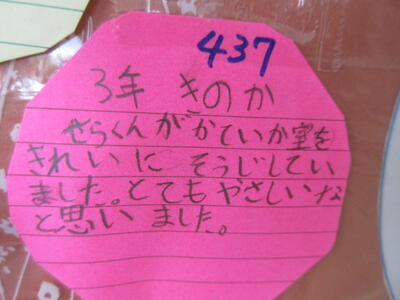 437
3年 きのか
せらくんがかていか室を
きれいに そうじしてい
ました。とてもやさしいな
と思いました。